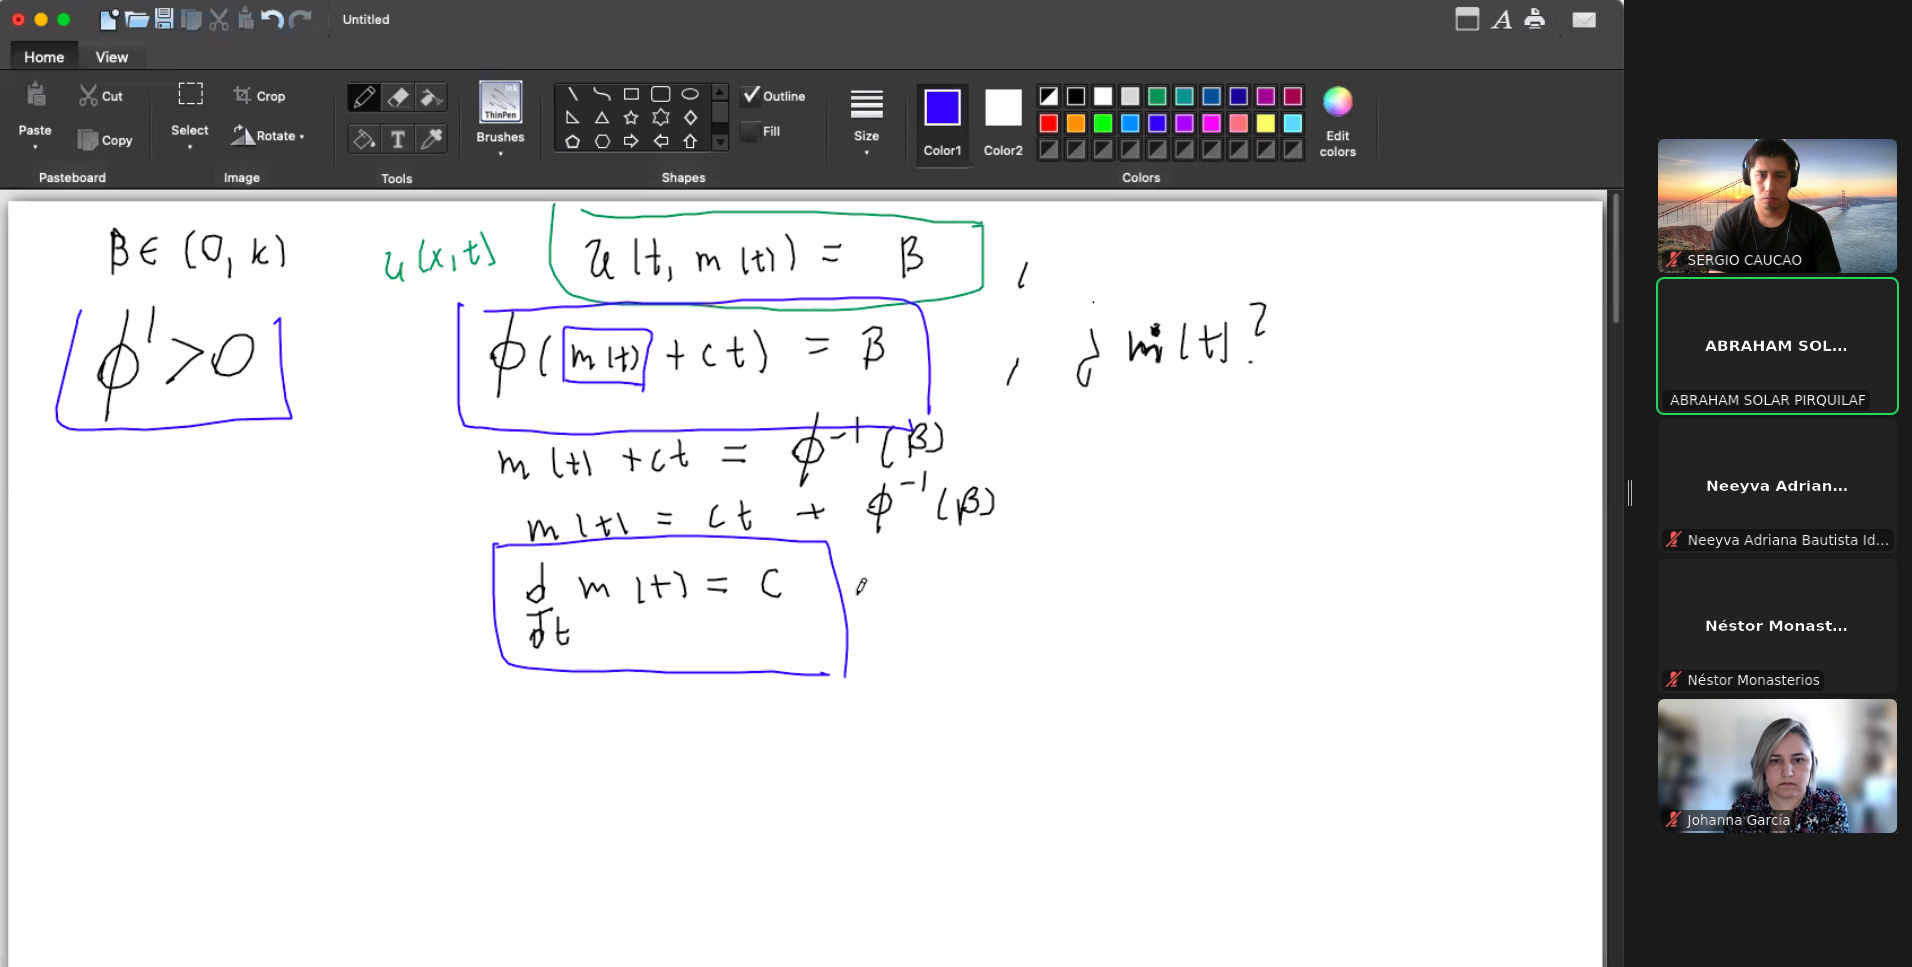 Untitled
Home View
Paste
Cut
Copy
Pasteboard
Select
Crop
Rotate
Image
Tools
Ink
ThinPen
Brushes
Outline
Fill
Shapes
Size
Color1
Color2
Edit colors
Colors
β ∈ (0, k)
ϕ' > 0
u(x,t)
u(t, m(t)) = β ,
ϕ(m(t) + ct) = β , ¿ṁ(t)?
m(t) + ct = ϕ⁻¹(β)
m(t) = ct + ϕ⁻¹(β)
d/dt m(t) = C
SERGIO CAUCAO
ABRAHAM SOL...
ABRAHAM SOLAR PIRQUILAF
Neeyva Adrian...
Neeyva Adriana Bautista Id...
Néstor Monast...
Néstor Monasterios
Johanna García